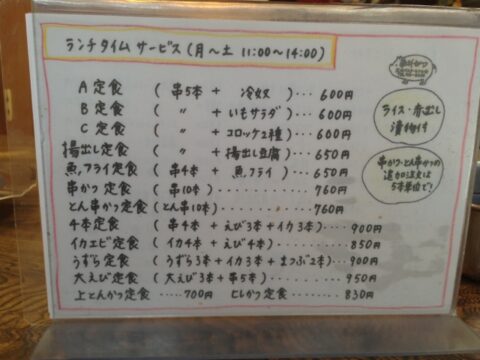 ランチタイム サービス (月〜土 11:00〜14:00)
A定食 (串5本 + 冷奴)・・・600円
B定食 ( 〃 + いもサラダ)・・・600円
C定食 ( 〃 + コロッケ2種)・・・600円
揚出し定食 ( 〃 + 揚出し豆腐)・・・650円
魚フライ定食 (串4本 + 魚フライ)・・・650円
串かつ定食 (串10本)・・・・・・760円
とん串かつ定食(とん串10本)・・・・・760円
4本定食 (串4本 + えび3本 + イカ3本)・・・900円
イカエビ定食 (イカ4本 + えび4本)・・・・・850円
うずら定食 (うずら3本 + イカ3本 + まつぶ2本)・・900円
大えび定食 (大えび3本 + 串5本)・・・・・950円
上とんかつ定食・・・・・700円 ヒレかつ定食・・・・・830円
串かつ
ライス・赤出し
漬物付
串かつ・とん串かつの
追加注文は
5本単位で!